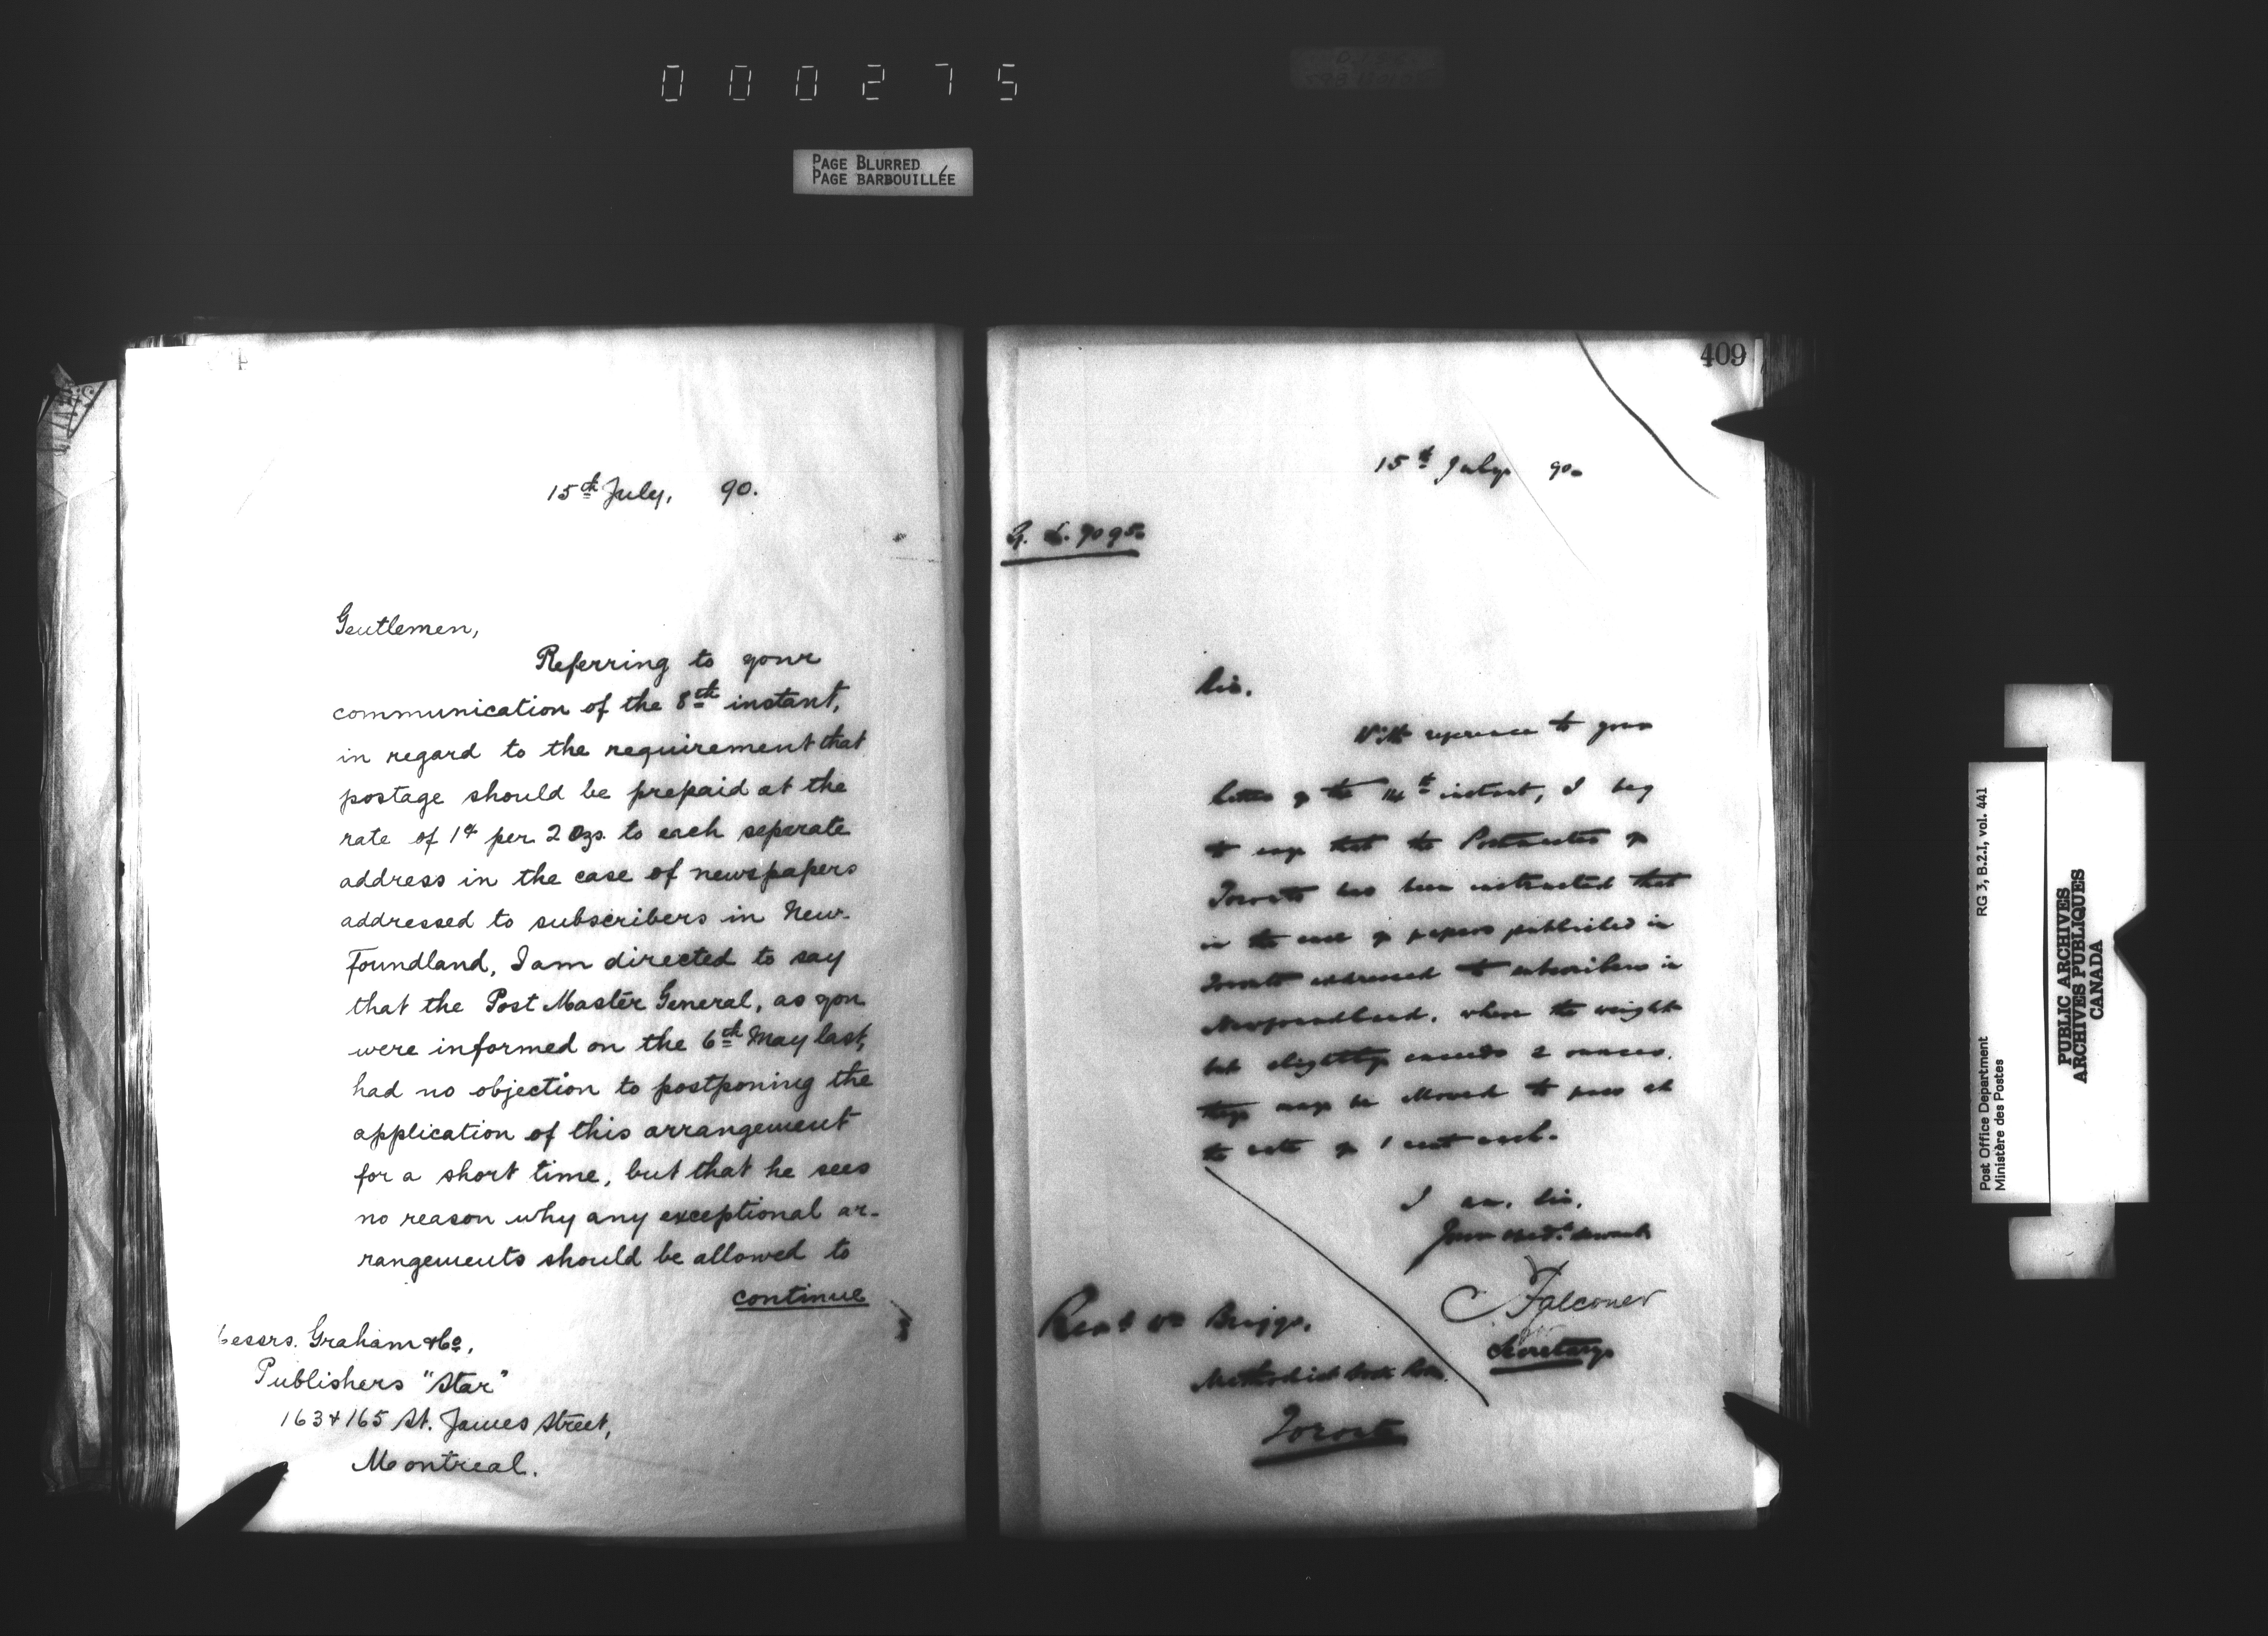 000275
PAGE BLURRED
PAGE BARBOUILLÉE
15th July, 90.
Gentlemen,
Referring to your
communication of the 8th instant,
in regard to the requirement that
postage should be prepaid at the
rate of 1¢ per 2 Ozs. to each separate
address in the case of newspapers
addressed to subscribers in New-
foundland, I am directed to say
that the Post Master General, as you
were informed on the 6th May last,
had no objection to postponing the
application of this arrangement
for a short time, but that he sees
no reason why any exceptional ar-
rangements should be allowed to
continue
essrs. Graham & Co,
Publishers "Star"
163 & 165 St. James Street,
Montreal.
409
15th July 90.
Sir.
With reference to your
letter of the 14th instant, I beg
to say that the Postmaster of
Toronto has been instructed that
in the case of papers published in
Toronto addressed to subscribers in
Newfoundland, where the weight
but slightly exceeds 2 ounces,
they may be allowed to pass at
the rate of 1 cent each.
I am, Sir,
Your obedt. servant
Falconer
Secretary
Revd Wm Briggs,
Methodist Book
Toronto
Post Office Department RG 3, B.2.I, vol. 441
Ministère des Postes
PUBLIC ARCHIVES
ARCHIVES PUBLIQUES
CANADA